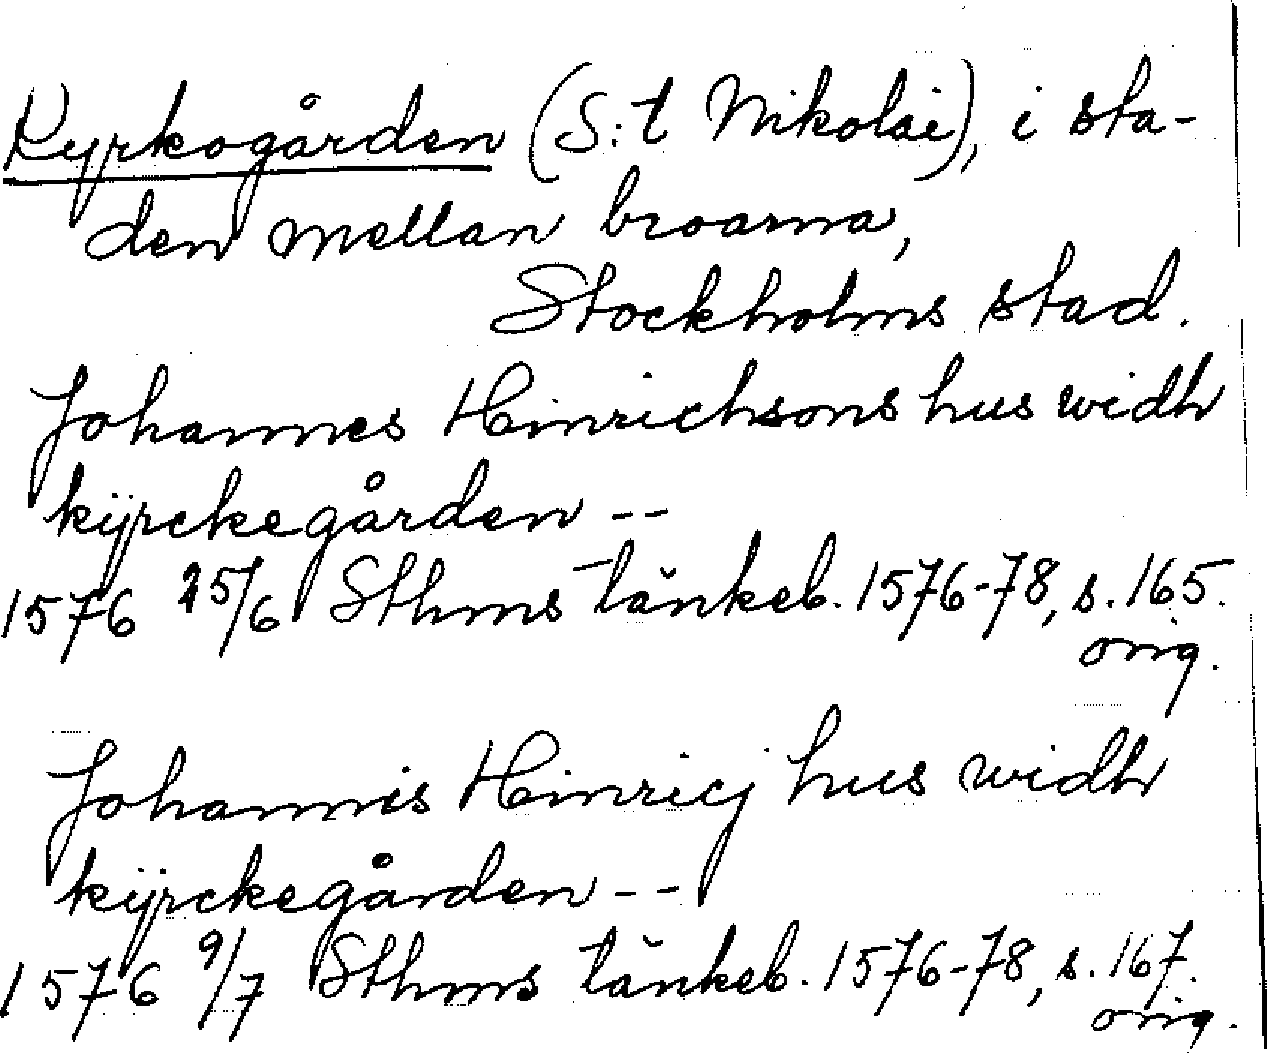 Kyrkogården (S:t Nikolai), i sta-
den mellan broarna,
Stockholms stad.
Johannes Hinrichsons hus widh
kÿrckegården --
1576 25/6 Sthms tänkeb. 1576-78, s. 165.
orig.
Johannis Hinricj hus widh
kÿrckegården --
1576 9/7 Sthms tänkeb. 1576-78, s. 167.
orig.